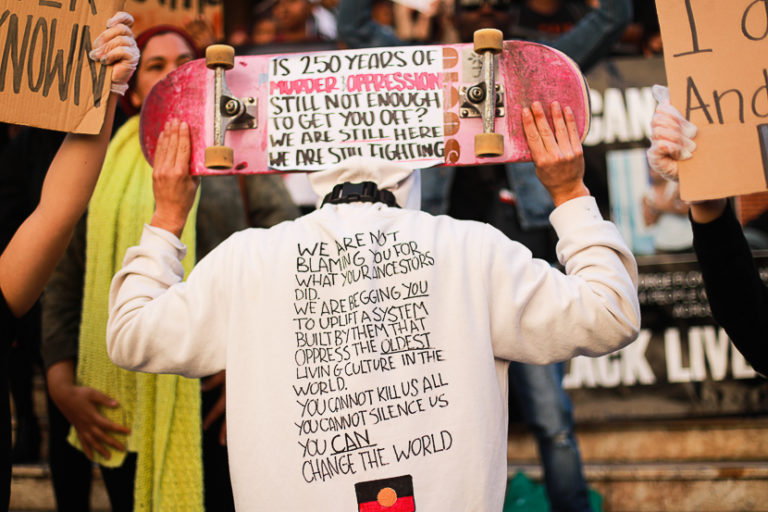 NOWN
IS 250 YEARS OF
MURDER & OPPRESSION
STILL NOT ENOUGH
TO GET YOU OFF?
WE ARE STILL HERE
WE ARE STILL FIGHTING
I a
And
CAN
WE ARE NOT
BLAMING YOU FOR
WHAT YOUR ANCESTORS
DID.
WE ARE BEGGING YOU
TO UPLIFT A SYSTEM
BUILT BY THEM THAT
OPPRESS THE OLDEST
LIVING CULTURE IN THE
WORLD.
YOU CANNOT KILL US ALL
YOU CANNOT SILENCE US
YOU CAN
CHANGE THE WORLD
ACK LIVE